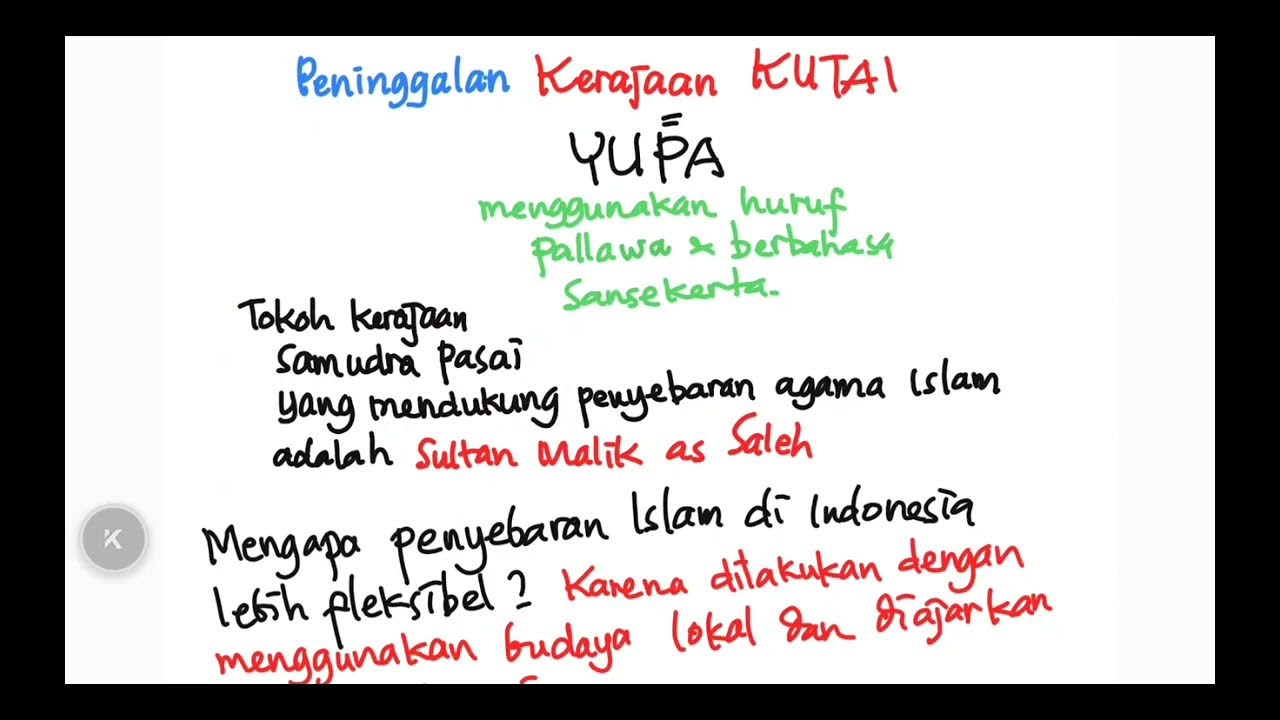 Peninggalan Kerajaan KUTAI
YUPA
menggunakan huruf
pallawa & berbahasa
Sansekerta.
Tokoh kerajaan
Samudra Pasai
yang mendukung penyebaran agama Islam
adalah Sultan Malik as Saleh
Mengapa penyebaran Islam di Indonesia
lebih fleksibel? Karena dilakukan dengan
menggunakan budaya lokal dan diajarkan
K